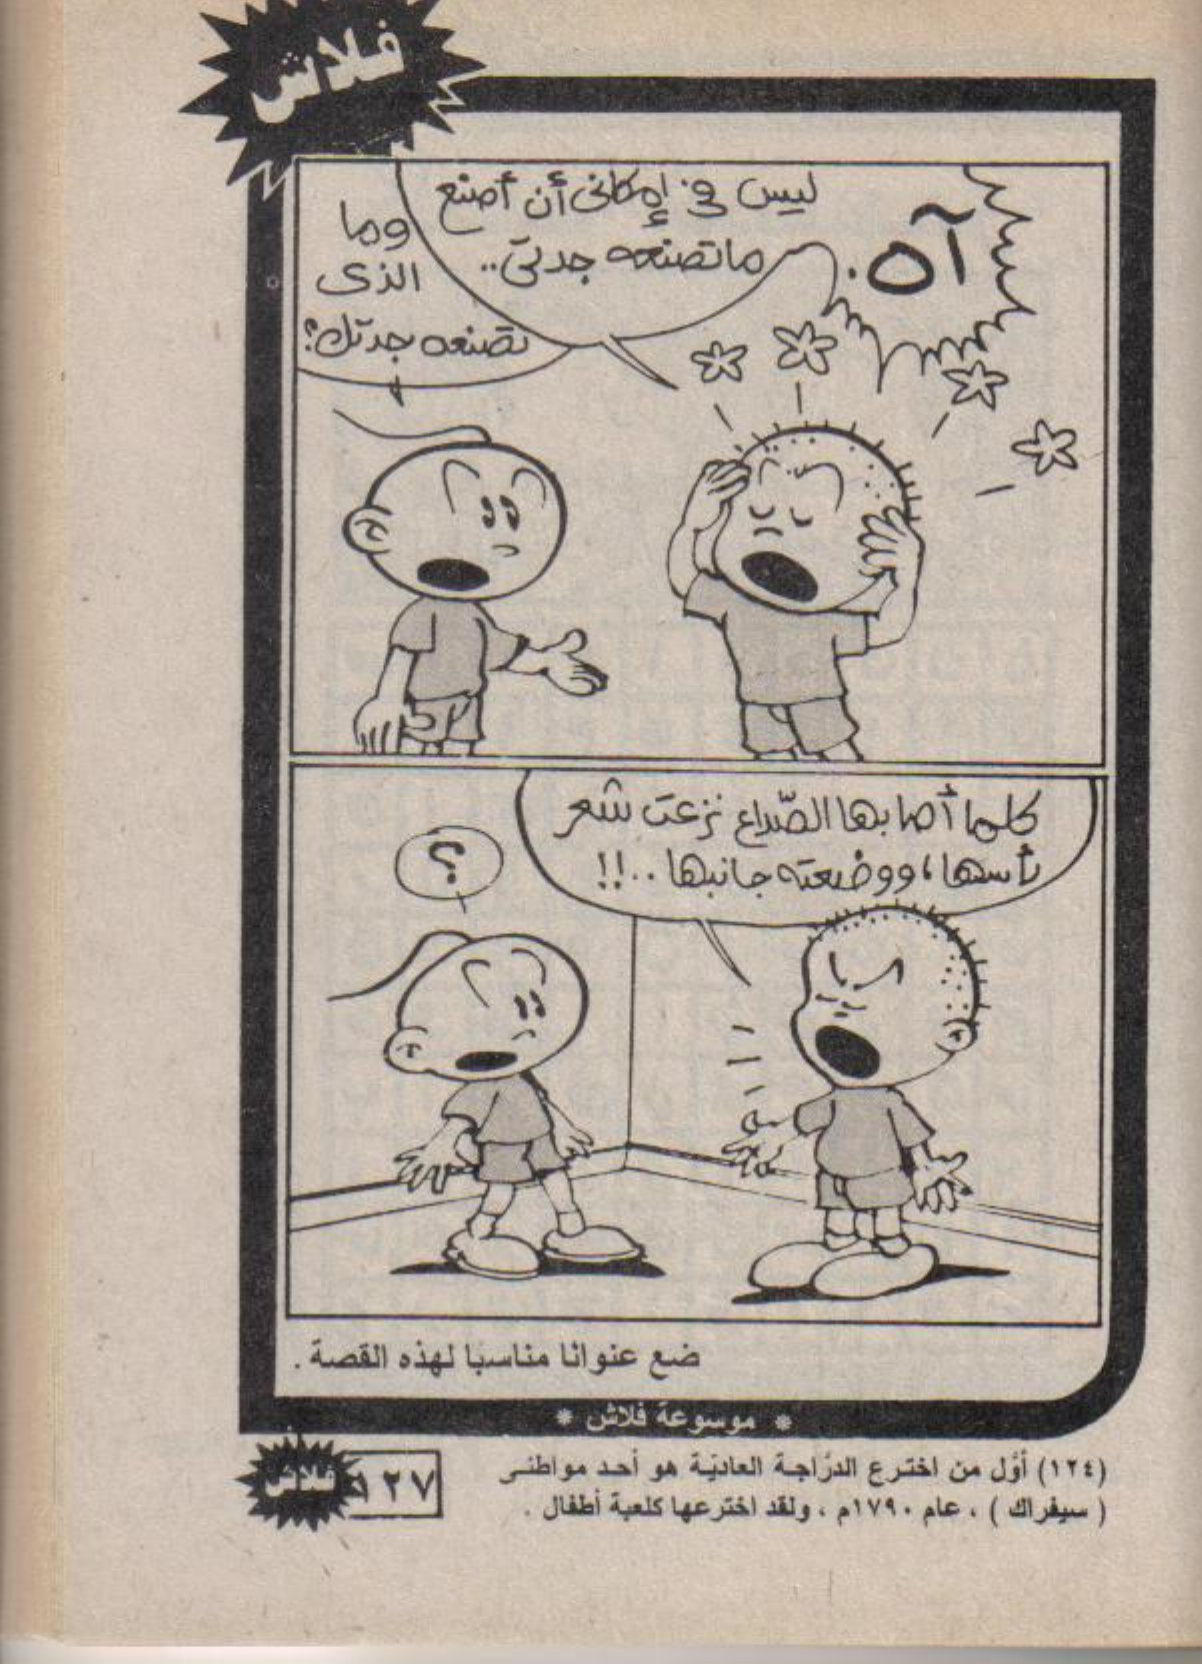 فلاش
آه.
ليس في إمكاني أن أصنع
ماتصنعه جدتي..
وما
الذى
تصنعه جدتك؟
كلما أصابها الصّداع نزعت شعر
رأسها، ووضعته جانبها..!!
؟
ضع عنوانا مناسبا لهذه القصة .
* موسوعة فلاش *
(١٢٤) أوّل من اخترع الدرّاجة العاديّة هو أحد مواطنى
( سيفراك ) ، عام ١٧٩٠م ، ولقد اخترعها كلعبة أطفال .
١٢٧
فلاش